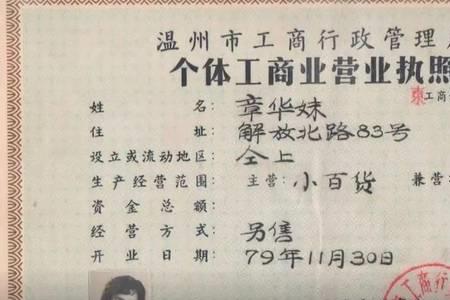 温州市工商行政管理
个体工商业营业执照
工商
姓 名: 章华妹
住 址: 解放北路83号
设立或流动地区: 仝上
生产经营范围: 主营: 小百货 兼营
资金总额:
经营方式: 另售
开业日期: 79年11月30日
工商行